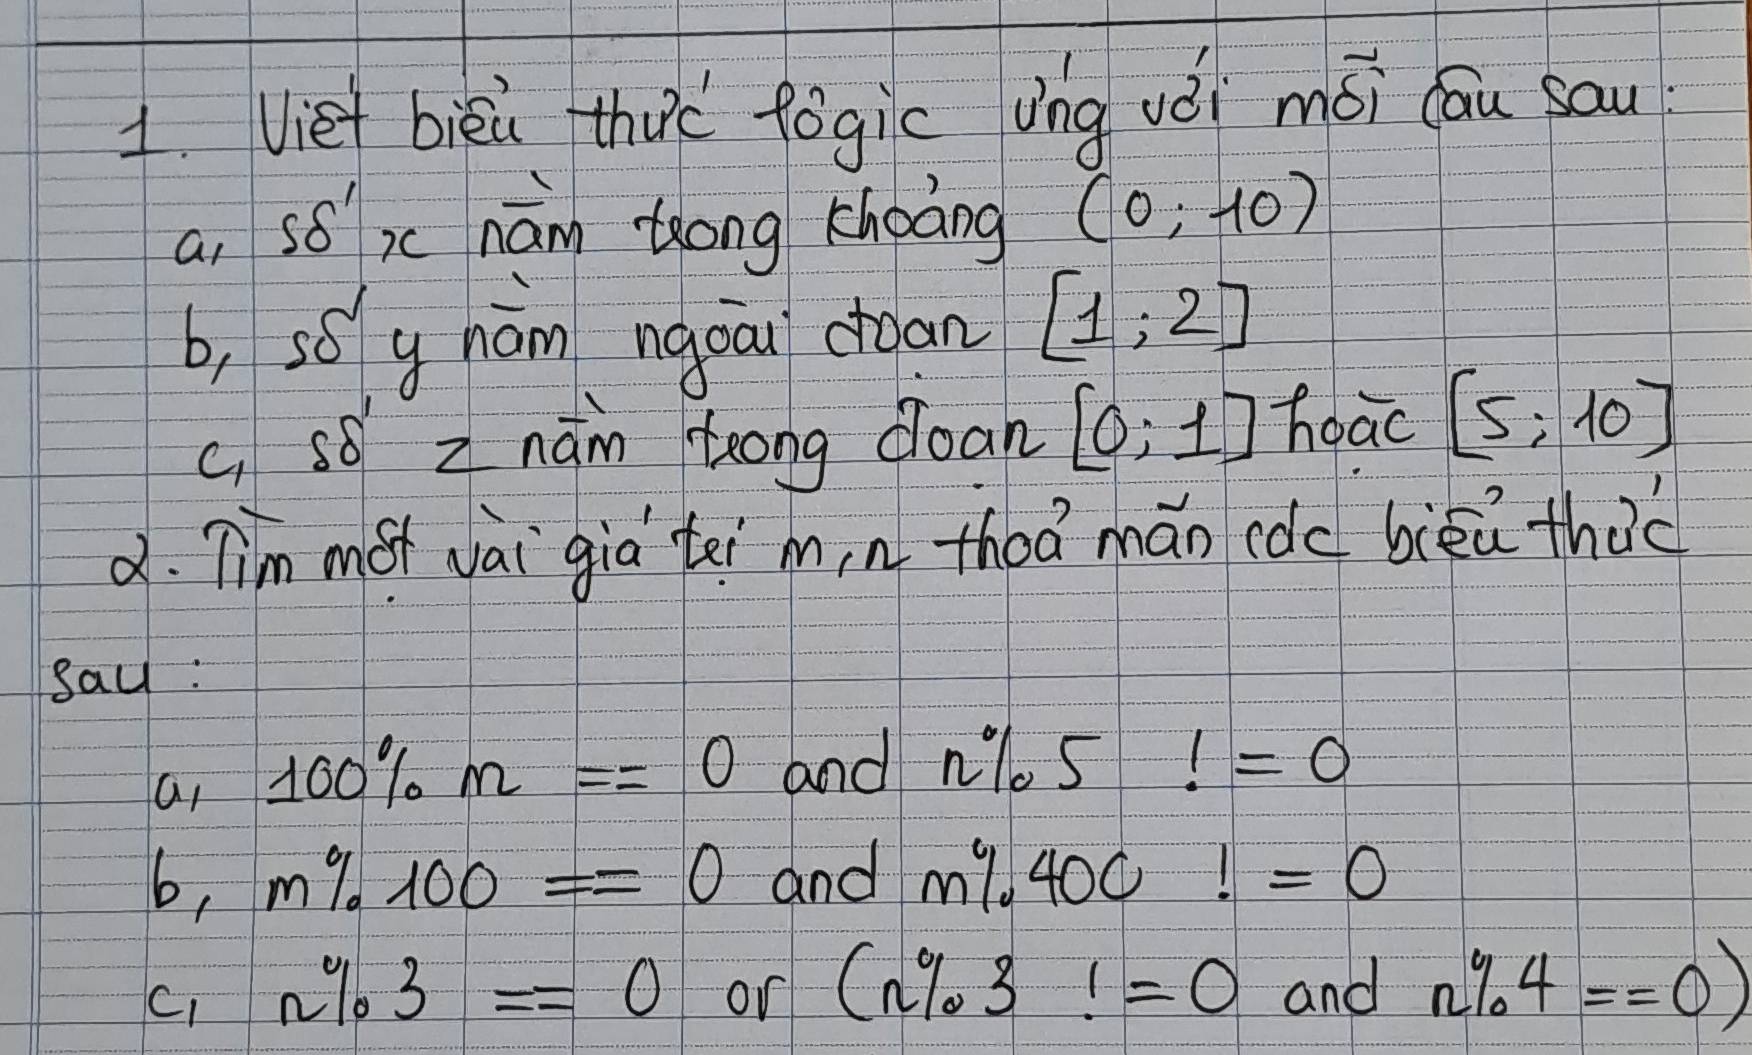 1. Viết biểu thức lôgic ứng với mỗi câu sau:
a, số x nằm trong khoảng (0; 10)
b, số y nằm ngoài đoạn [1; 2]
c, số z nằm trong đoạn [0; 1] hoặc [5; 10]
2. Tìm một vài giá trị m, n thoả mãn các biểu thức
sau:
a, 100% m == 0 and n% 5 != 0
b, m% 100 == 0 and m% 400 != 0
c, n% 3 == 0 or (n% 3 != 0 and n% 4 == 0)